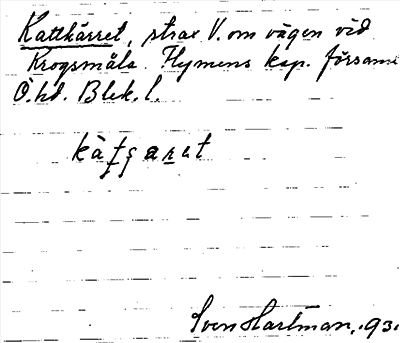 Kattkärret, strax V. om vägen vid
Krogsmåla. Flymens kap. församl.
Ö. hd. Blek. l.
Sven Hartman, 93.